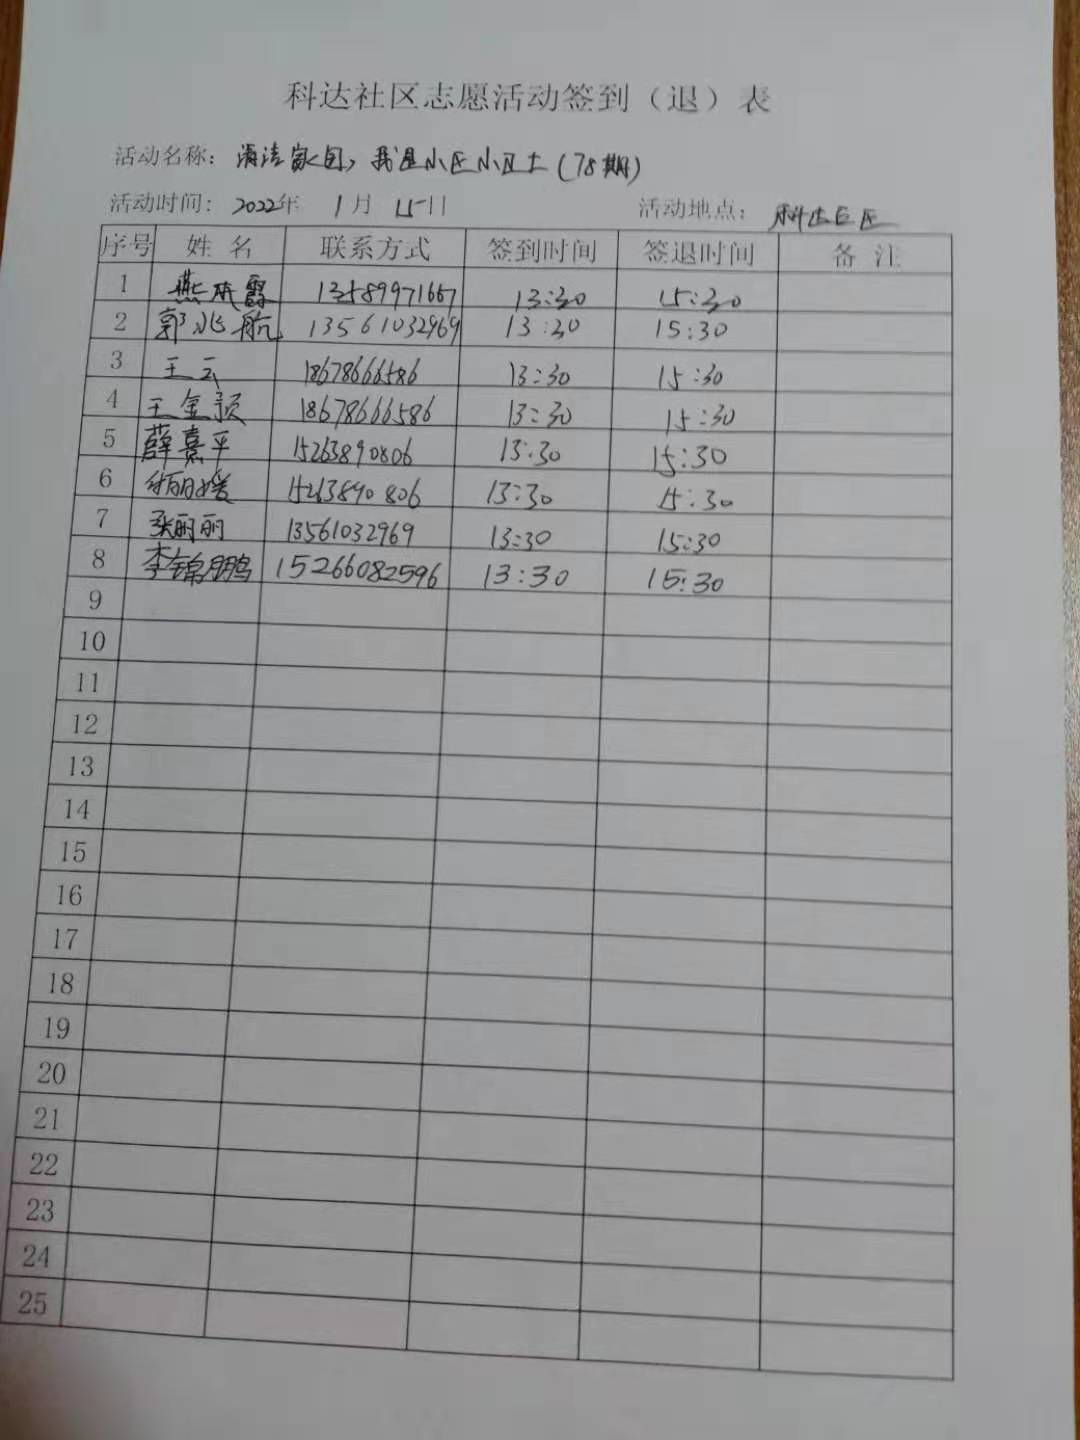 科达社区志愿活动签到（退）表
活动名称：清洁家园，我是小区小卫士（78期）
活动时间：2022年 1月 15日 活动地点：科达社区
序号 姓 名 联系方式 签到时间 签退时间 备 注
1 燕霞 13589971667 13:30 15:30
2 郭兆航 13561032969 13:30 15:30
3 王云 18678666586 13:30 15:30
4 王金颖 18678666586 13:30 15:30
5 薛嘉平 15263890806 13:30 15:30
6 丽媛 15263890806 13:30 15:30
7 张丽丽 13561032969 13:30 15:30
8 李锦鹏 15266082596 13:30 15:30
9
10
11
12
13
14
15
16
17
18
19
20
21
22
23
24
25